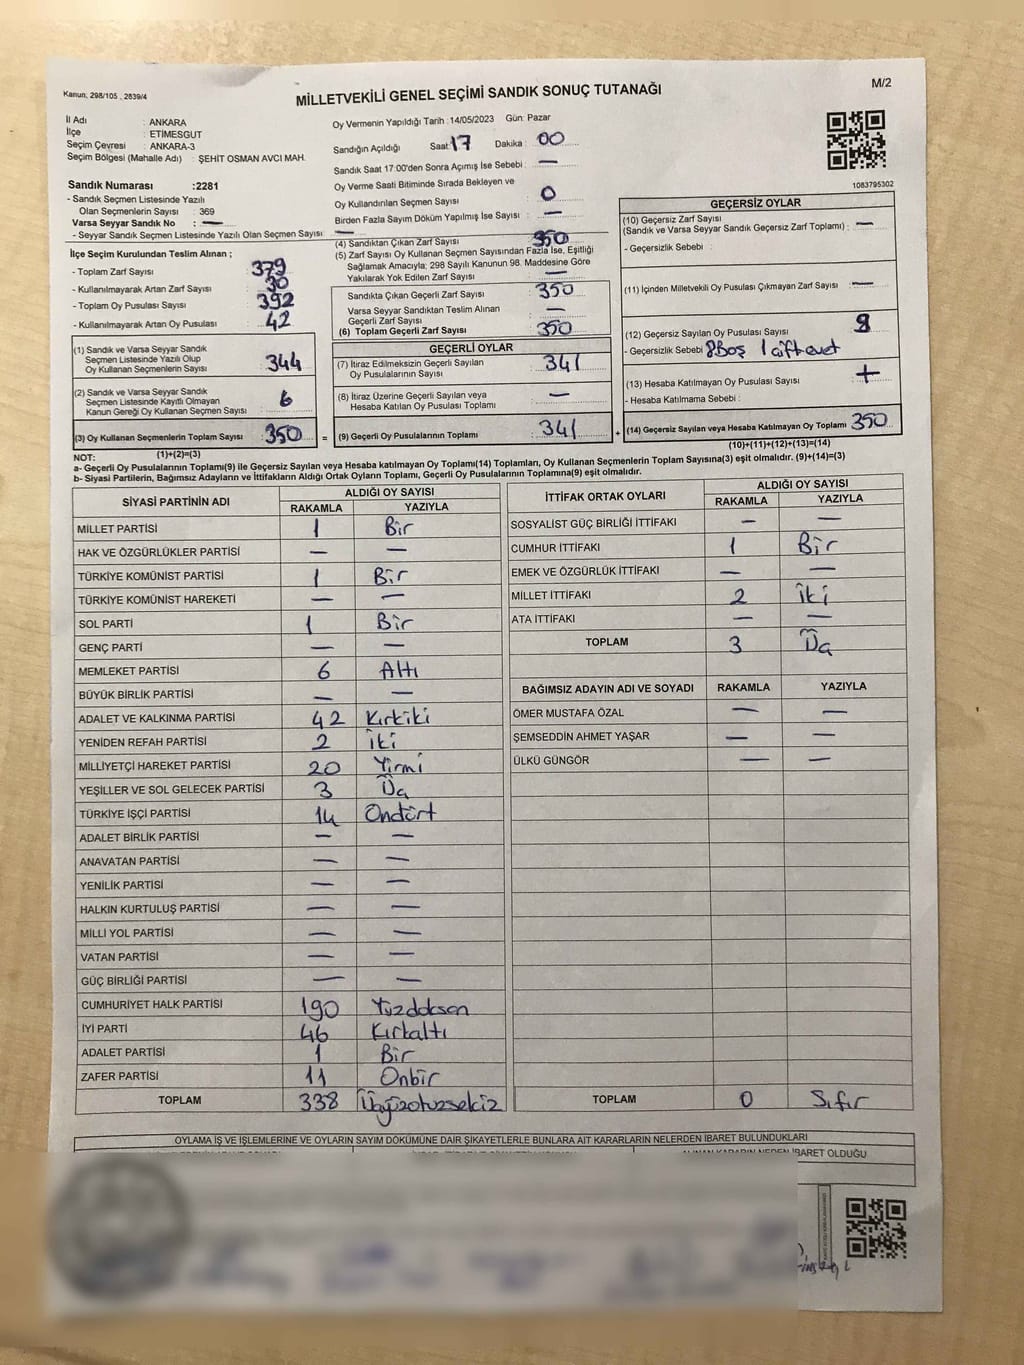 Kanun, 298/105 , 2839/4
MİLLETVEKİLİ GENEL SEÇİMİ SANDIK SONUÇ TUTANAĞI
M/2
İl Adı : ANKARA
İlçe : ETİMESGUT
Seçim Çevresi : ANKARA-3
Seçim Bölgesi (Mahalle Adı) : ŞEHİT OSMAN AVCI MAH.
Sandık Numarası :2281
- Sandık Seçmen Listesinde Yazılı
Olan Seçmenlerin Sayısı : 369
Varsa Seyyar Sandık No : —
- Seyyar Sandık Seçmen Listesinde Yazılı Olan Seçmen Sayısı : —
İlçe Seçim Kurulundan Teslim Alınan ;
- Toplam Zarf Sayısı : 379
- Kullanılmayarak Artan Zarf Sayısı : 30
- Toplam Oy Pusulası Sayısı : 392
- Kullanılmayarak Artan Oy Pusulası : 42
(1) Sandık ve Varsa Seyyar Sandık
Seçmen Listesinde Yazılı Olup
Oy Kullanan Seçmenlerin Sayısı : 344
(2) Sandık ve Varsa Seyyar Sandık
Seçmen Listesinde Kayıtlı Olmayan
Kanun Gereği Oy Kullanan Seçmen Sayısı : 6
(3) Oy Kullanan Seçmenlerin Toplam Sayısı : 350 =
(1)+(2)=(3)
Oy Vermenin Yapıldığı Tarih :14/05/2023 Gün: Pazar
Sandığın Açıldığı Saat: 17 Dakika : 00
Sandık Saat 17:00'den Sonra Açımış İse Sebebi : —
Oy Verme Saati Bitiminde Sırada Bekleyen ve
Oy Kullandırılan Seçmen Sayısı : 0
Birden Fazla Sayım Döküm Yapılmış İse Sayısı : —
(4) Sandıktan Çıkan Zarf Sayısı : 350
(5) Zarf Sayısı Oy Kullanan Seçmen Sayısından Fazla İse, Eşitliği
Sağlamak Amacıyla; 298 Sayılı Kanunun 98. Maddesine Göre
Yakılarak Yok Edilen Zarf Sayısı : —
Sandıkta Çıkan Geçerli Zarf Sayısı : 350
Varsa Seyyar Sandıktan Teslim Alınan
Geçerli Zarf Sayısı : —
(6) Toplam Geçerli Zarf Sayısı : 350
GEÇERLİ OYLAR
(7) İtiraz Edilmeksizin Geçerli Sayılan
Oy Pusulalarının Sayısı : 341
(8) İtiraz Üzerine Geçerli Sayılan veya
Hesaba Katılan Oy Pusulası Toplamı : —
(9) Geçerli Oy Pusulalarının Toplamı : 341 +
1083795302
GEÇERSİZ OYLAR
(10) Geçersiz Zarf Sayısı
(Sandık ve Varsa Seyyar Sandık Geçersiz Zarf Toplamı) : —
- Geçersizlik Sebebi :
(11) İçinden Milletvekili Oy Pusulası Çıkmayan Zarf Sayısı : —
(12) Geçersiz Sayılan Oy Pusulası Sayısı : 9
- Geçersizlik Sebebi : 8Boş 1 çift evet
(13) Hesaba Katılmayan Oy Pusulası Sayısı :
- Hesaba Katılmama Sebebi :
(14) Geçersiz Sayılan veya Hesaba Katılmayan Oy Toplamı : 350
(10)+(11)+(12)+(13)=(14)
NOT:
a- Geçerli Oy Pusulalarının Toplamı(9) ile Geçersiz Sayılan veya Hesaba katılmayan Oy Toplamı(14) Toplamları, Oy Kullanan Seçmenlerin Toplam Sayısına(3) eşit olmalıdır. (9)+(14)=(3)
b- Siyasi Partilerin, Bağımsız Adayların ve İttifakların Aldığı Ortak Oyların Toplamı, Geçerli Oy Pusulalarının Toplamına(9) eşit olmalıdır.
SİYASİ PARTİNİN ADI
ALDIĞI OY SAYISI
RAKAMLA YAZIYLA
MİLLET PARTİSİ 1 Bir
HAK VE ÖZGÜRLÜKLER PARTİSİ — —
TÜRKİYE KOMÜNİST PARTİSİ 1 Bir
TÜRKİYE KOMÜNİST HAREKETİ — —
SOL PARTİ 1 Bir
GENÇ PARTİ — —
MEMLEKET PARTİSİ 6 Altı
BÜYÜK BİRLİK PARTİSİ — —
ADALET VE KALKINMA PARTİSİ 42 Kırkiki
YENİDEN REFAH PARTİSİ 2 İki
MİLLİYETÇİ HAREKET PARTİSİ 20 Yirmi
YEŞİLLER VE SOL GELECEK PARTİSİ 3 Üç
TÜRKİYE İŞÇİ PARTİSİ 14 Ondört
ADALET BİRLİK PARTİSİ — —
ANAVATAN PARTİSİ — —
YENİLİK PARTİSİ — —
HALKIN KURTULUŞ PARTİSİ — —
MİLLİ YOL PARTİSİ — —
VATAN PARTİSİ — —
GÜÇ BİRLİĞİ PARTİSİ — —
CUMHURİYET HALK PARTİSİ 190 Yüzdoksan
İYİ PARTİ 46 Kırkaltı
ADALET PARTİSİ 1 Bir
ZAFER PARTİSİ 11 Onbir
TOPLAM 338 Üçyüzotuzsekiz
İTTİFAK ORTAK OYLARI
ALDIĞI OY SAYISI
RAKAMLA YAZIYLA
SOSYALİST GÜÇ BİRLİĞİ İTTİFAKI — —
CUMHUR İTTİFAKI 1 Bir
EMEK VE ÖZGÜRLÜK İTTİFAKI — —
MİLLET İTTİFAKI 2 İki
ATA İTTİFAKI — —
TOPLAM 3 Üç
BAĞIMSIZ ADAYIN ADI VE SOYADI RAKAMLA YAZIYLA
ÖMER MUSTAFA ÖZAL — —
ŞEMSEDDİN AHMET YAŞAR — —
ÜLKÜ GÜNGÖR — —
TOPLAM 0 Sıfır
OYLAMA İŞ VE İŞLEMLERİNE VE OYLARIN SAYIM DÖKÜMÜNE DAİR ŞİKAYETLERLE BUNLARA AİT KARARLARIN NELERDEN İBARET BULUNDUKLARI
ALINAN KARARIN NEDEN İBARET OLDUĞU